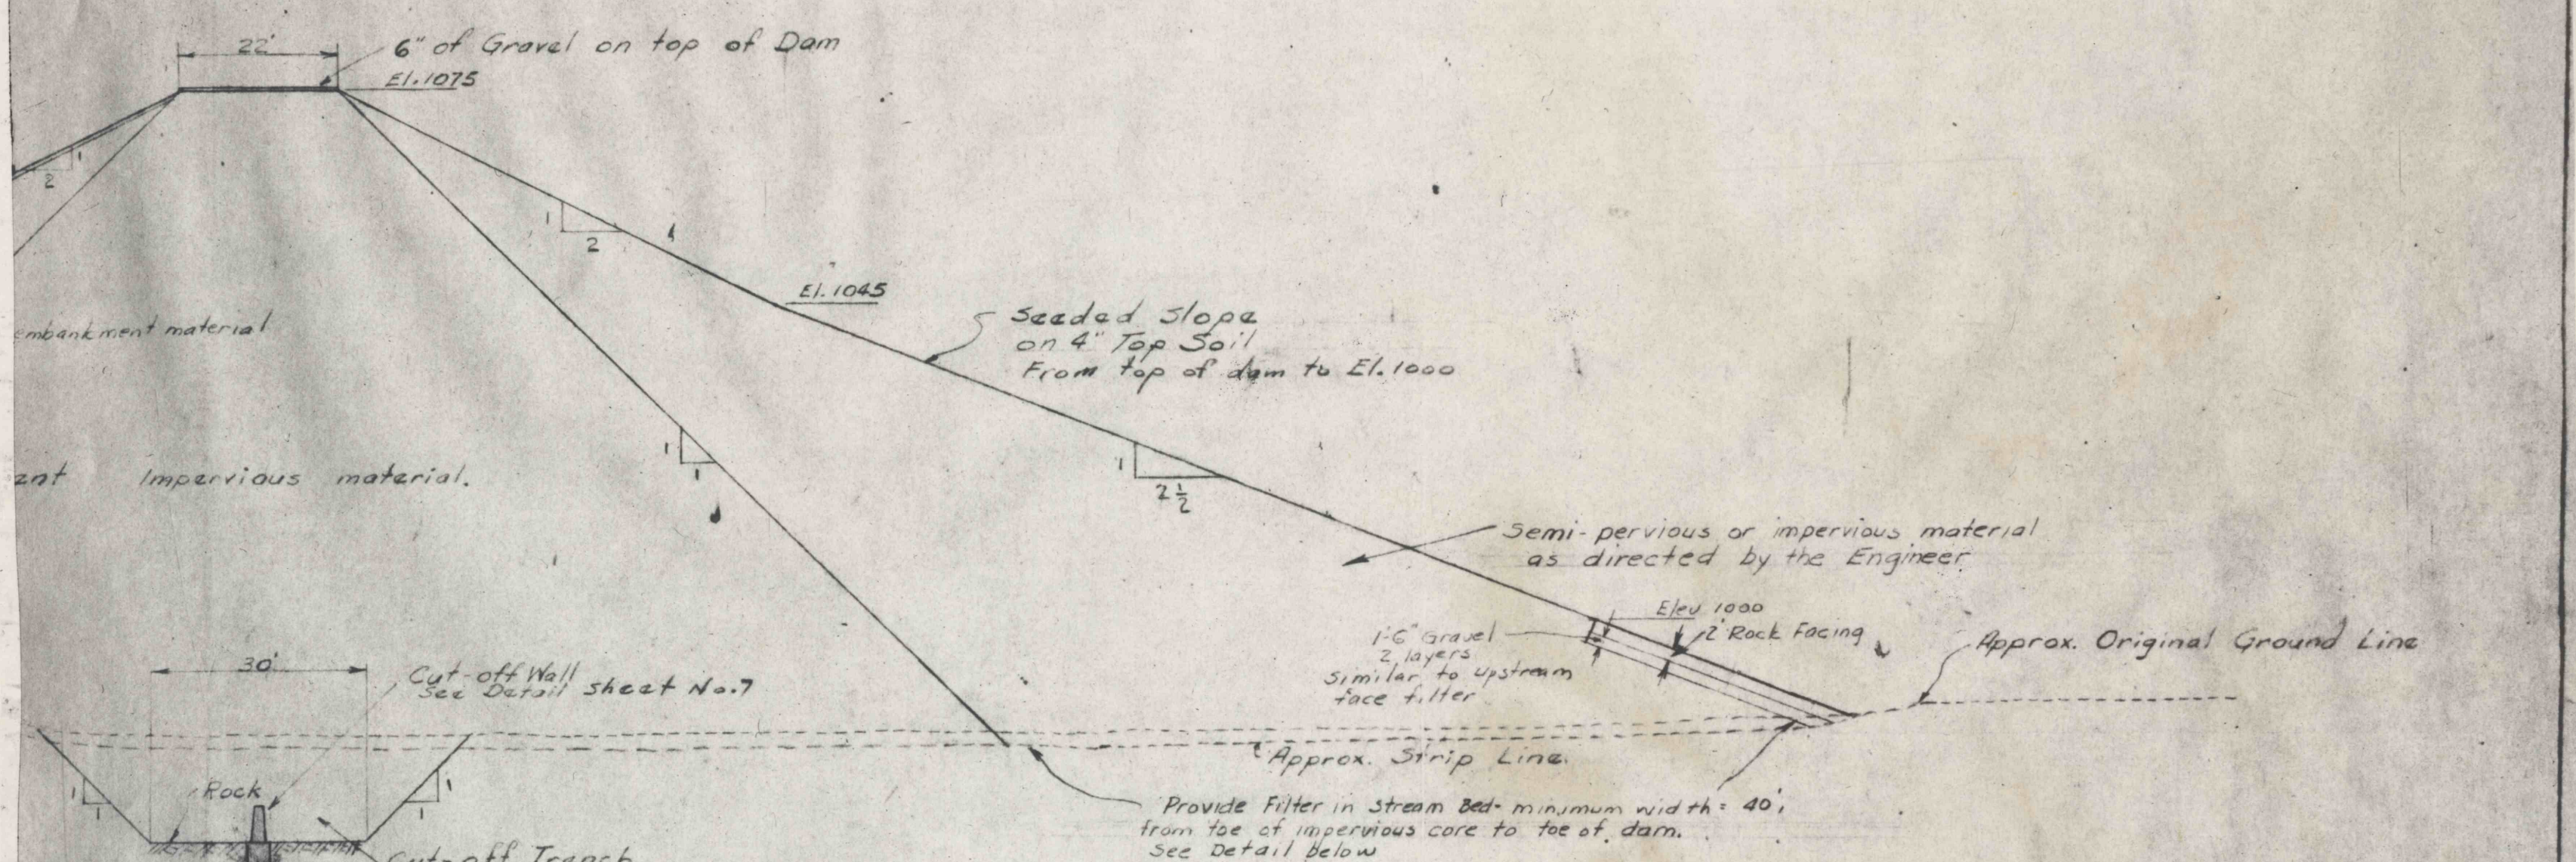 22'
6" of Gravel on top of Dam
El. 1075
1
2
1
2
El. 1045
Seeded Slope
on 4" Top Soil
From top of dam to El. 1000
embankment material
Impervious material.
1
1
1
2 1/2
Semi-pervious or impervious material
as directed by the Engineer
Elev 1000
2' Rock Facing
1'-6" Gravel
2 layers
Similar to upstream
face filter
Approx. Original Ground Line
30'
Cut-off Wall
See Detail sheet No. 7
Approx. Strip Line.
Rock
1
1
1
1
Provide Filter in stream Bed - minimum width = 40',
from toe of impervious core to toe of dam.
See Detail below
Cut-off Trench